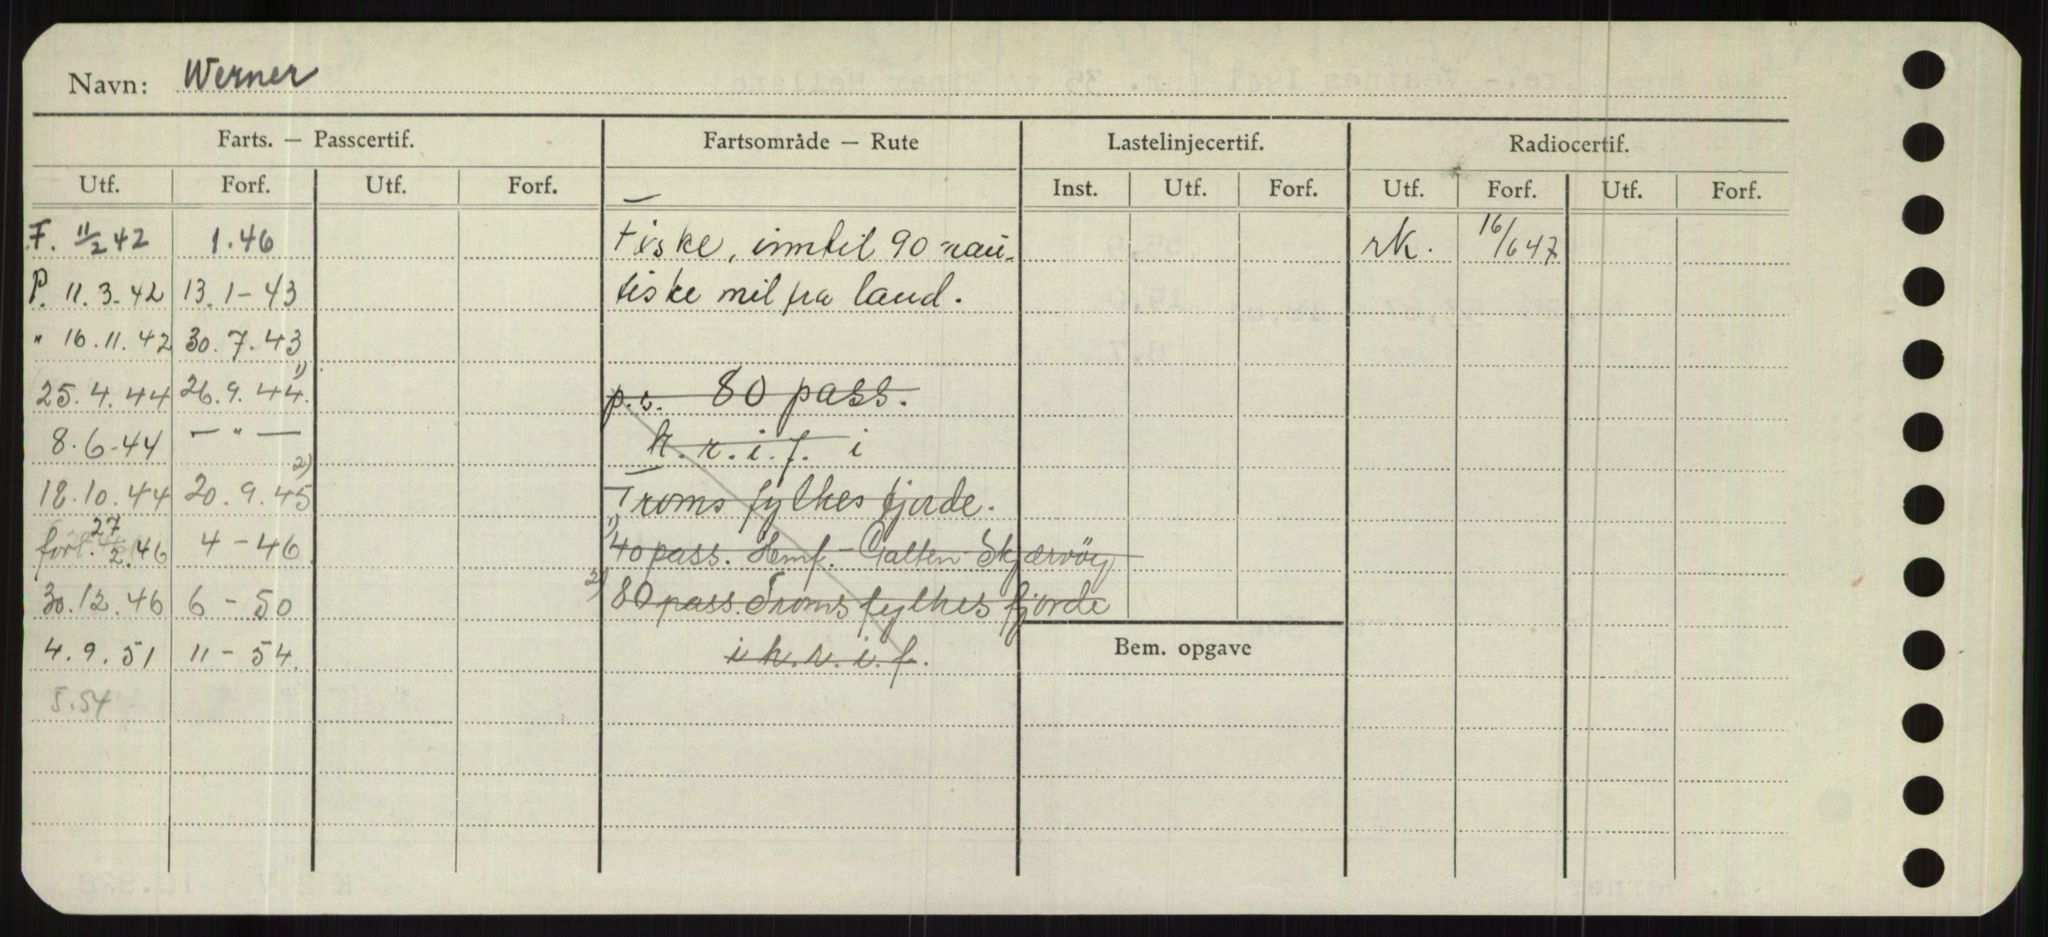 Navn: Werner
Farts. — Passcertif. Fartsområde — Rute Lastelinjecertif. Radiocertif.
Utf. Forf. Utf. Forf. Inst. Utf. Forf. Utf. Forf. Utf. Forf.
F. 11/2 42 1.46 Fiske, inntil 90 nau- rk. 16/6 47
P. 11.3-42 13.1-43 tiske mil fra land.
" 16.11.42 30.7.43
25.4.44 26.9.44. 1) p.s. 80 pass.
8.6-44 — " — k.r.i.f. i
18.10.44 20.9.45 2) Troms fylkes fjorde.
forl. 27/2.46 4-46 1) 40 pass. Hmf.- Galten-Skjervöy
30.12.46 6-50 2) 80 pass. Troms fylkes fjorde
4.9.51 11-54. i k.r.i.f.
Bem. opgave
5.54